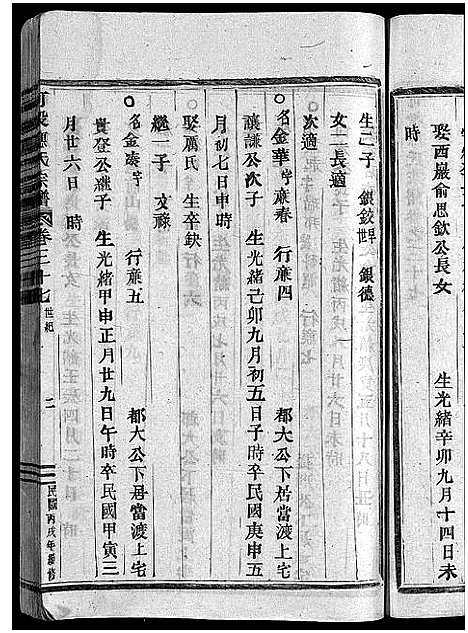 娶西巖俞思欽公長女 生光緒辛卯九月十四日未
時
生三子 銀鉸 銀德
女二長適
次適
名金華字 春 行 四 都大公下居當渡上宅
讓謙公次子 生光緒己卯九月初五日子時卒民國庚申五
月初七日申時
娶 氏 生卒缺
繼一子 文祿
名金 字 行 五 都大公下居當渡上宅
公繼子 生光緒甲申正月廿九日午時卒民國甲寅三
月廿六日時
氏宗譜 卷三十七 世紀 二 民國丙戌年續修